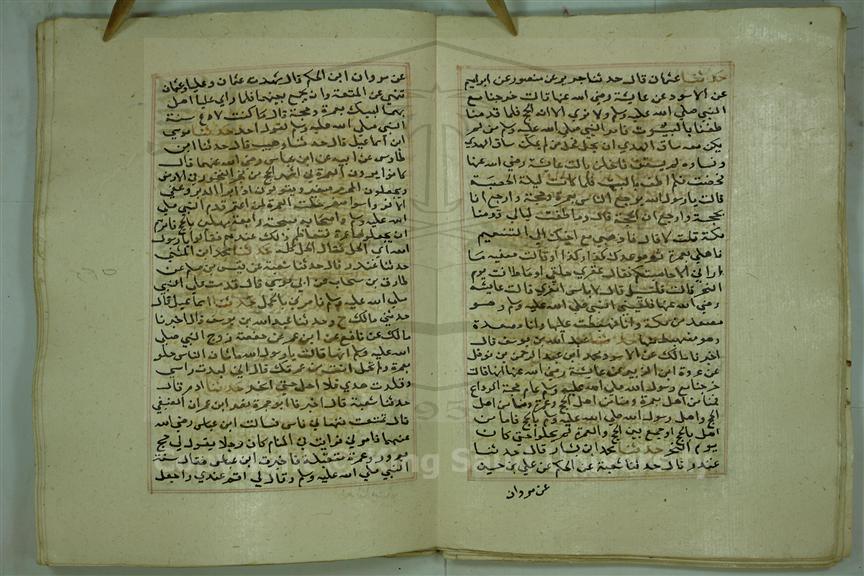 حدثنا عثمان قال حدثنا جرير عن منصور عن ابراهيم
عن الاسود عن عايشة رضي الله عنها قالت خرجنا مع
النبي صلى الله عليه وسلم ولا نرى الا انه الحج فلما قدمنا
طفنا بالبيت فامر النبي صلى الله عليه وسلم من لم
يكن معه ساق الهدي ان يحل فحل من لم يكن ساق الهدي
ونساوه لم يسقن فاحللن قالت عايشة رضي الله عنها
فحضت فلم اطف بالبيت فلما كانت ليلة الحصبة
قالت يارسول الله يرجع الناس بعمرة وحجة وارجع انا
بحجة قال وما طفت ليالي قدمنا
مكة قلت لا قال فاذهبي مع اخيك الى التنعيم
فاهلي بعمرة ثم موعدك كذا وكذا وقالت صفية ما
اراني الا حابستكم فقال عقرى حلقى او ما طفت يوم
النحر قالت قلت بلى قال لا باس انفري قالت عايشة
رضي الله عنها فلقيني النبي صلى الله عليه وسلم وهو
مصعد من مكة وانا منهبطة عليها وانا مصعدة
وهو منهبط منها حدثنا عبد الله بن يوسف قال
اخبرنا مالك عن الاسود محمد ابن عبد الرحمن بن نوفل
عن عروة ابن الزبير عن عايشة رضي الله عنها انها قالت
خرجنا مع رسول الله صلى الله عليه وسلم عام حجة الوداع
فمنا من اهل بعمرة ومنا من اهل بحج وعمرة ومنا من اهل
بالحج واهل رسول الله صلى الله عليه وسلم بالحج فاما من
اهل بالحج او جمع بين الحج والعمرة لم يحلوا حتى كان
يوم النحر حدثنا محمد ابن بشار قال حدثنا
غندر قال حدثنا شعبة عن الحكم عن علي بن حسين
عن مروان
عن مروان ابن الحكم قال شهدت عثمان وعليا وعثمان
ينهى عن المتعة وان يجمع بينهما فلما راى علي اهل
بهما لبيك بعمرة وحجة قال ما كنت لادع سنة
النبي صلى الله عليه وسلم لقول احد حدثنا موسى
ابن اسماعيل قال حدثنا وهيب قال حدثنا ابن
طاوس عن ابيه عن ابن عباس رضي الله عنهما قال
كانوا يرون العمرة في اشهر الحج من افجر الفجور في الارض
ويجعلون المحرم صفر ويقولون اذا برا الدبر وعفى
الاثر وانسلخ صفر حلت العمرة لمن اعتمر قدم النبي صلى
الله عليه وسلم واصحابه صبيحة رابعة مهلين بالحج فامرهم
ان يجعلوها عمرة فتعاظم ذلك عندهم فقالوا يارسول
الله اي الحل قال الحل كله حدثنا محمد ابن المثنى
حدثنا غندر قال حدثنا شعبة عن قيس بن مسلم عن
طارق بن شهاب عن ابي موسى قال قدمت على النبي
صلى الله عليه وسلم فامر بالحل حدثنا اسماعيل قال
حدثني مالك ح وحدثنا عبد الله بن يوسف قال اخبرنا
مالك عن نافع عن ابن عمر عن حفصة زوج النبي صلى
الله عليه وسلم انها قالت يارسول الله ما شان الناس حلوا
بعمرة ولم تحلل انت من عمرتك قال اني لبدت راسي
وقلدت هدي فلا احل حتى انحر حدثنا ادم قال
حدثنا شعبة قال اخبرنا ابو جمرة نصر ابن عمران الضبعي
قال تمتعت فنهاني ناس فسالت ابن عباس رضي الله
عنهما فامرني فرايت في المنام كان رجلا يقول لي حج
مبرور وعمرة متقبلة فاخبرت ابن عباس فقال سنة
النبي صلى الله عليه وسلم وقال لي اقم عندي واجعل